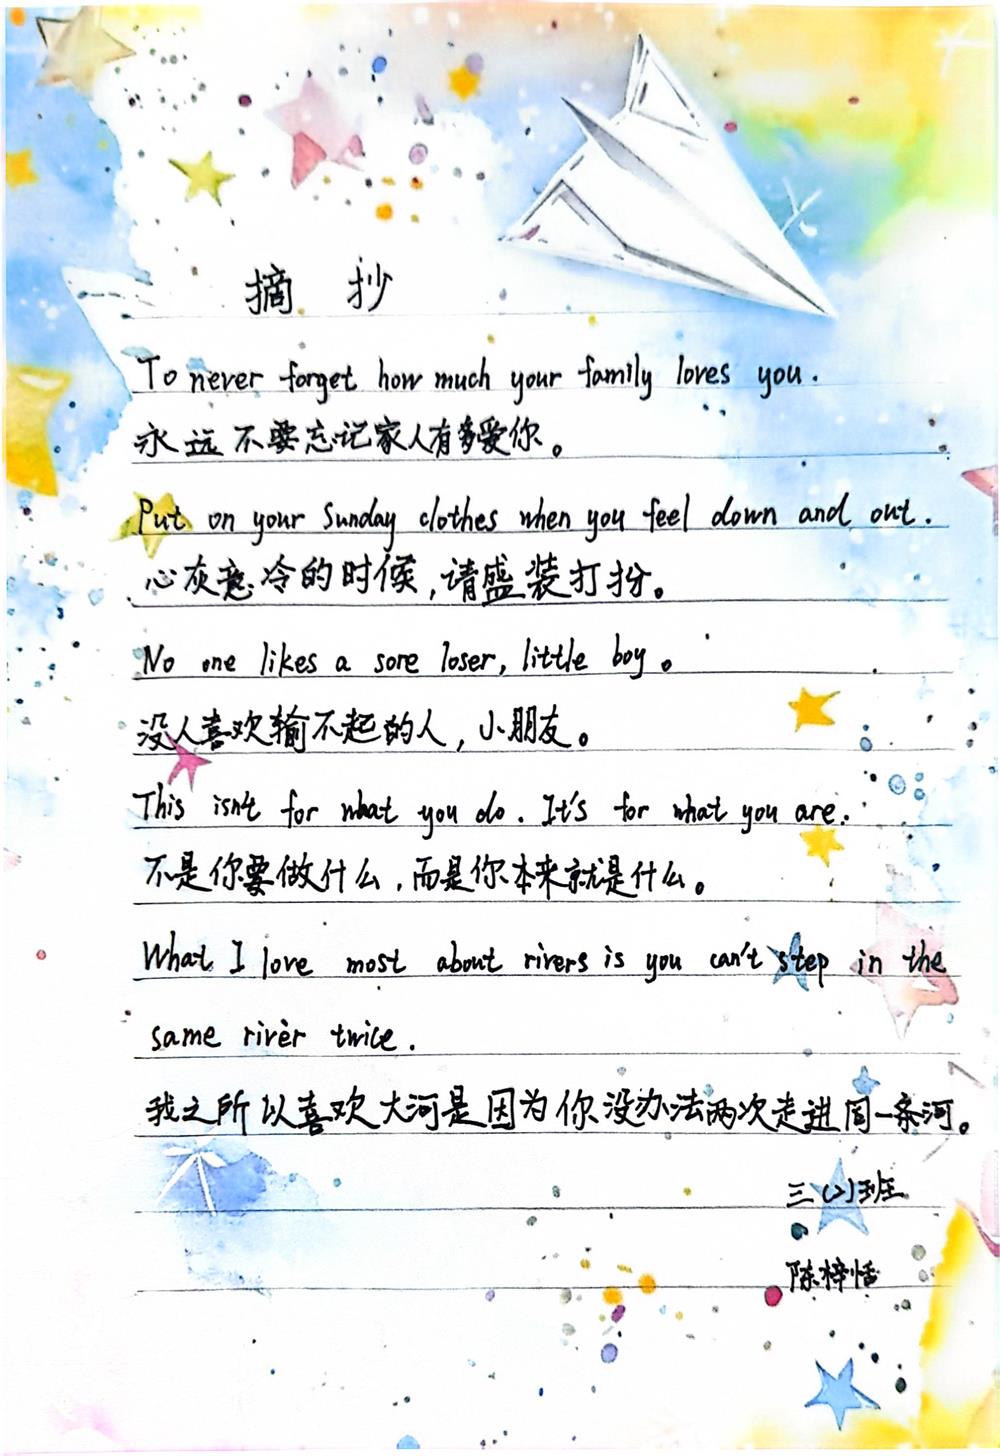 摘抄
To never forget how much your family loves you.
永远不要忘记家人有多爱你。
Put on your Sunday clothes when you feel down and out.
心灰意冷的时候,请盛装打扮。
No one likes a sore loser, little boy。
没人喜欢输不起的人,小朋友。
This isn't for what you do. It's for what you are.
不是你要做什么,而是你本来就是什么。
What I love most about rivers is you can't step in the
same river twice.
我之所以喜欢大河是因为你没办法两次走进同一条河。
三(2)班
陈梓恬